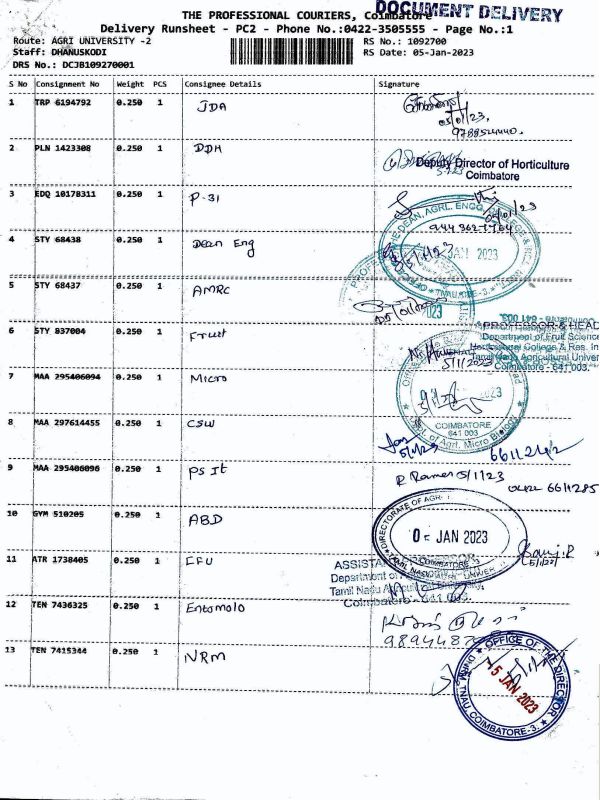 DOCUMENT DELIVERY
THE PROFESSIONAL COURIERS, Coimbatore
Delivery Runsheet - PC2 - Phone No.:0422-3505555 - Page No.:1
Route: AGRI UNIVERSITY -2 RS No.: 1092700
Staff: DHANUSKODI RS Date: 05-Jan-2023
DRS No.: DCJB109270001
S No Consignment No Weight PCS Consignee Details Signature
1 TRP 6194792 0.250 1 JDA
05/01/23,
9788524440.
2 PLN 1423308 0.250 1 DDH
Deputy Director of Horticulture
Coimbatore
3 EDQ 10178311 0.250 1 P-31
4 STY 68438 0.250 1 Dean Eng
JAN 2023
5 STY 68437 0.250 1 AMRC
2023
6 STY 837004 0.250 1 Fruit
PROFESSOR & HEAD
Department of Fruit Science
Horticultural College & Res. In
Tamil Nadu Agricultural Univer
Coimbatore - 641 003.
5/1/2023
7 MAA 295406094 0.250 1 Micro
2023
COIMBATORE
641 003
Dept. of Agrl. Micro Biology
8 MAA 297614455 0.250 1 CSW
5/1/23 6611242
9 MAA 295406096 0.250 1 PS It
R Rames 5/1/23
6611285
10 GYM 510205 0.250 1 ABD
DIRECTORATE OF AGRI
JAN 2023
COIMBATORE-3
11 ATR 1738405 0.250 1 CFU
Tamil Nadu
Coimbatore - 641 003.
12 TEN 7436325 0.250 1 Entomolo
13 TEN 7415344 0.250 1 NRM
OFFICE OF THE DIRECTOR
5 JAN 2023
TNAU, COIMBATORE-3.